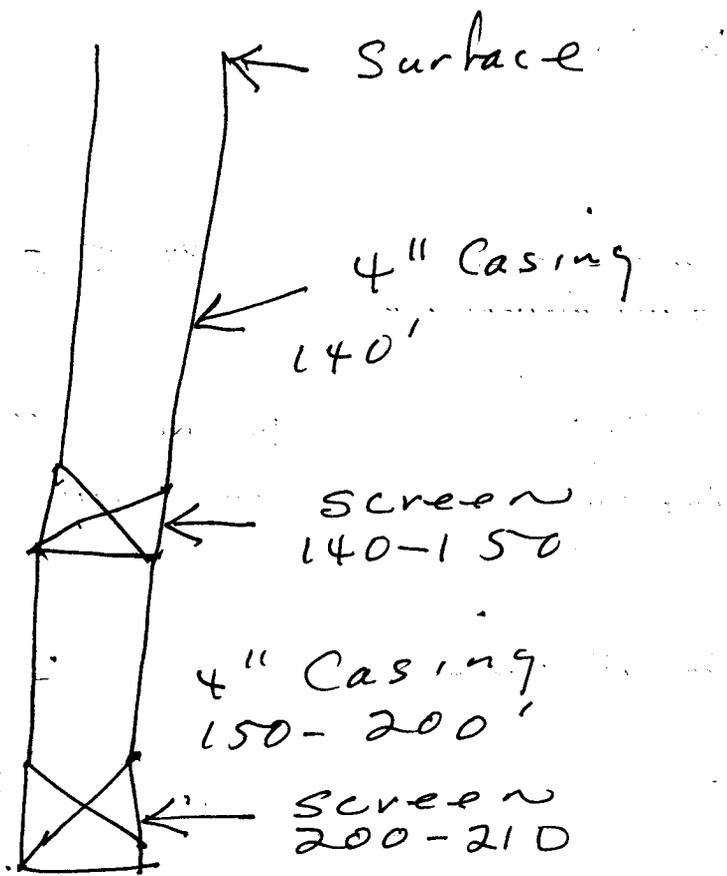 Surface
4" Casing
140'
screen
140-150
4" Casing
150-200'
screen
200-210